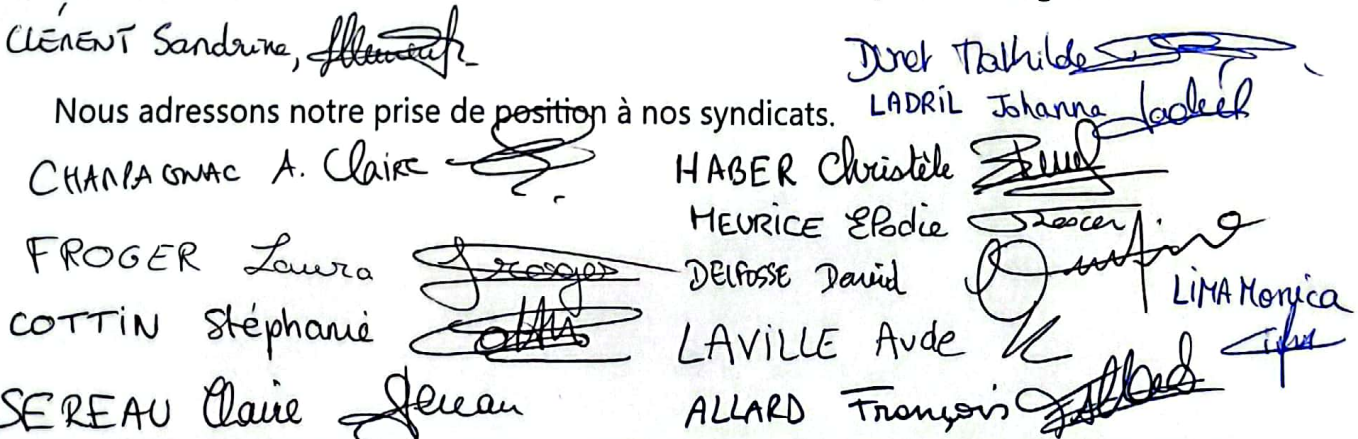 CLÉMENT Sandrine,
Duret Mathilde
Nous adressons notre prise de position à nos syndicats.
LADRIL Johanna
CHAMPAGNAC A. Claire
HABER Christèle
MEURICE Elodie
FROGER Laura Froger
DELFOSSE David
LIMA Monica
COTTIN Stéphanie Cottin
LAVILLE Aude
SEREAU Claire Sereau
ALLARD François Allard